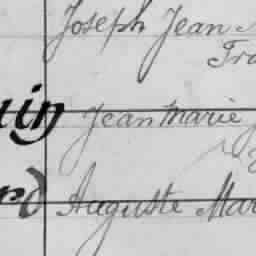 Joseph Jean
Fra
uin Jean Marie
rd Auguste Mar